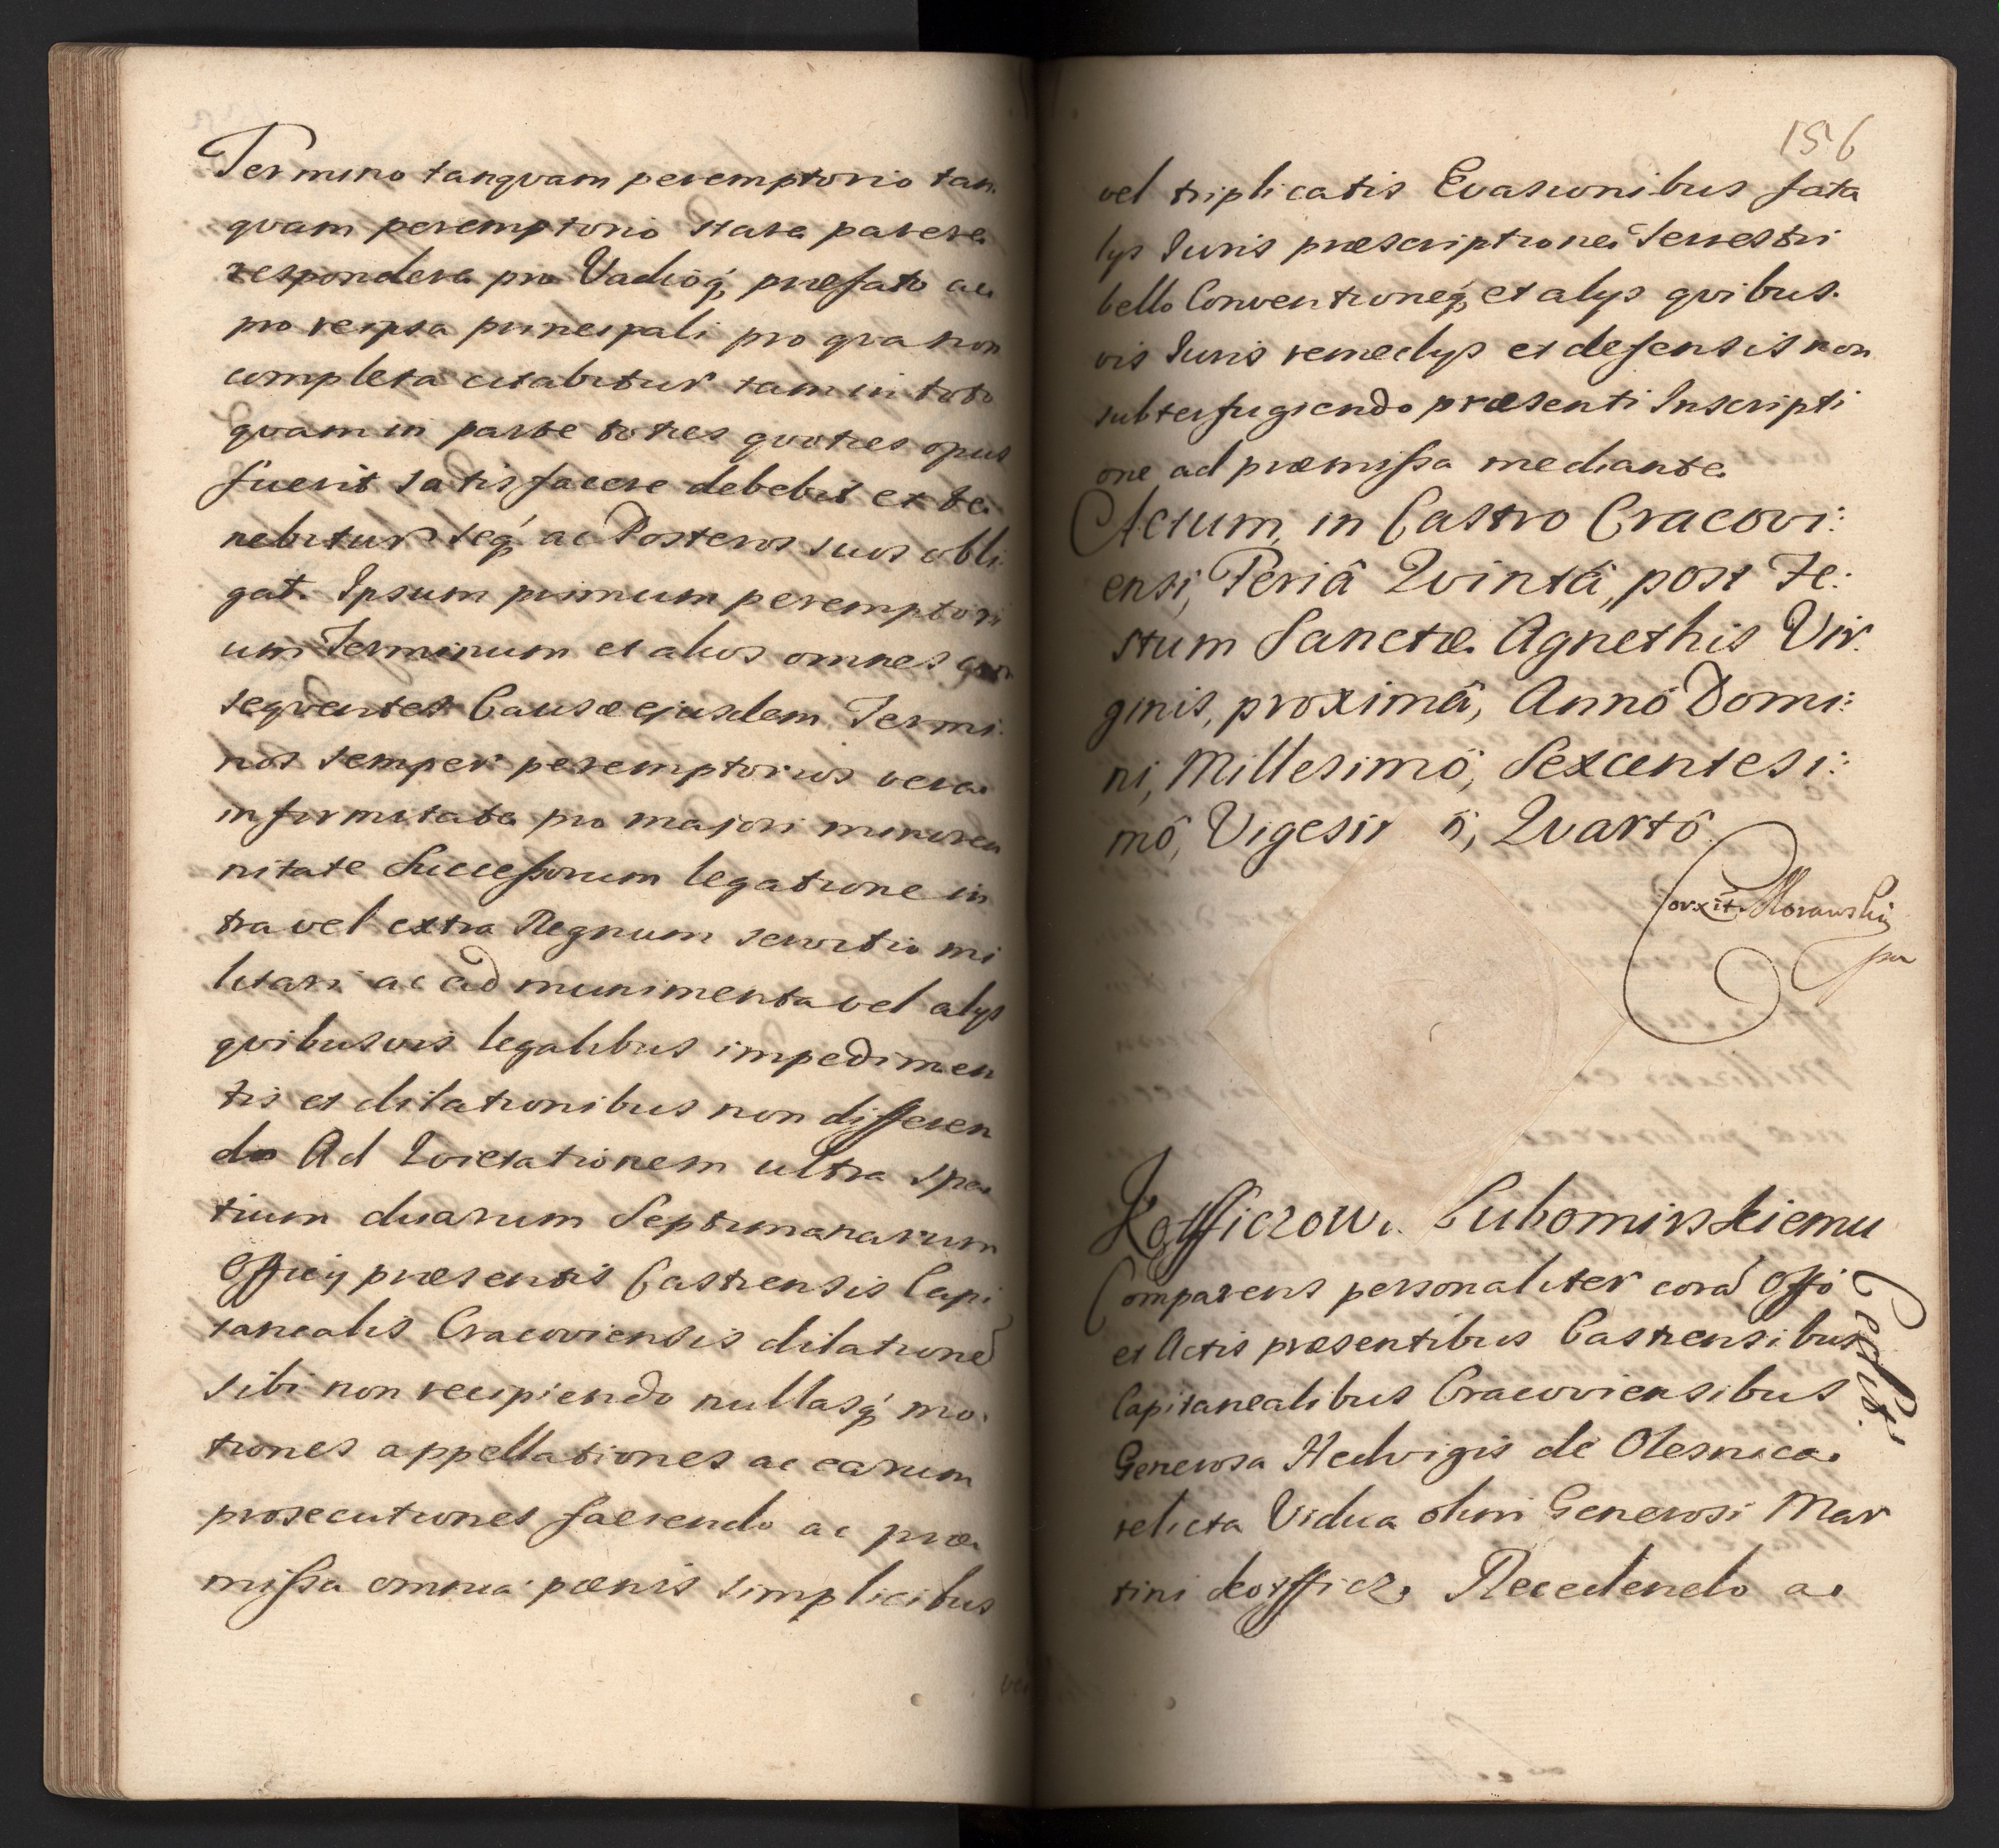 Termino tanqvam peremptorio tan
qvam peremptorio stare parere
respondere pro Vadioq́ præfato ac
pro reipsa principali pro qva non
completa citabitur tam in toto
qvam in parte toties qvoties opus
fuerit satisfacere debebit et te
nebitur seq́ ac Posteros suos obli
gat. Ipsum primum peremptori
um Terminum et alios omnes
seqventes Causæ ejusdem Termi
nos semper peremptorios vera
infirmitate pro majori minoren
nitate Successorum legatione in
tra vel extra Regnum servitio mi
litari ac ad munimenta vel alys
qvibusvis legalibus impedimen
tis et dilationibus non differen
do Ad Qvietationem ultra spa
tium duarum Septimanarum
Officij præsentis Castrensis Capi
tanealis Cracoviensis dilatione
sibi non recipiendo nullasq́ mo
tiones appellationes ac earum
prosecutiones faciendo ac præ
missa omnia pœnis simplicibus
156
vel triplicatis Evasionibus fata
lys Iuris præscriptione Terrestri
bello Conventioneq́ et alys qvibus
vis Iuris remedys et defensis non
subterfugiendo præsenti Inscripti
one ad præmissa mediante.
Actum, in Castro Cracovi:
ensi, Feriâ Qvintâ, post Fe:
stum Sanctæ Agnethis Vir:
ginis, proximâ, Annô Domi:
ni, Millesimô, Sexcentesi:
mô, Vigesi ô, Qvartô
Corxit. Morawski
pp
Lubomirskiemu
Comparens personaliter corā Offo
et Actis præsentibus Castrensibus
Capitanealibus Cracoviensibus
Generosa Hedvigis de Olesnica
relicta Vidua olim Generosi Mar
tini Recedendo a
Cessit.